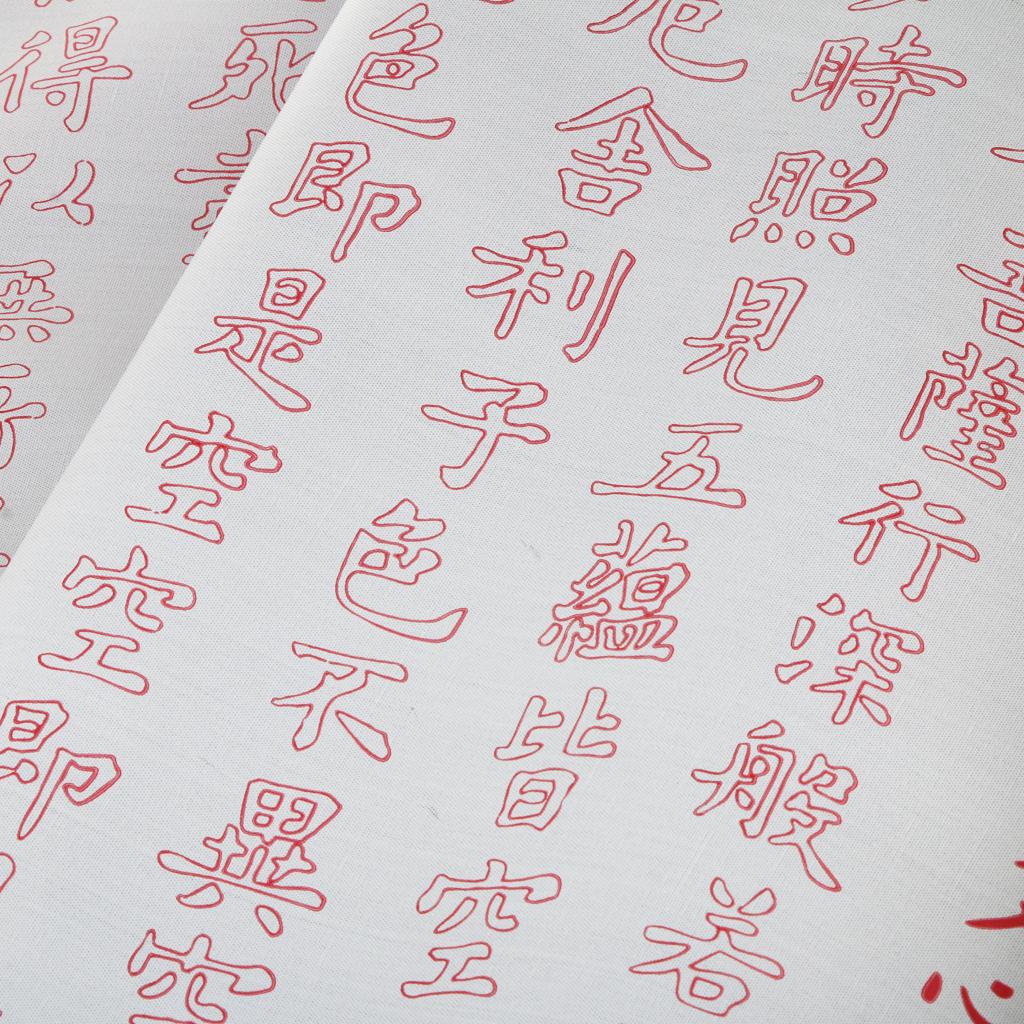 菩薩行深般若
時照見五蘊皆空
厄舍利子色不異空
色即是空空即
死
得以無